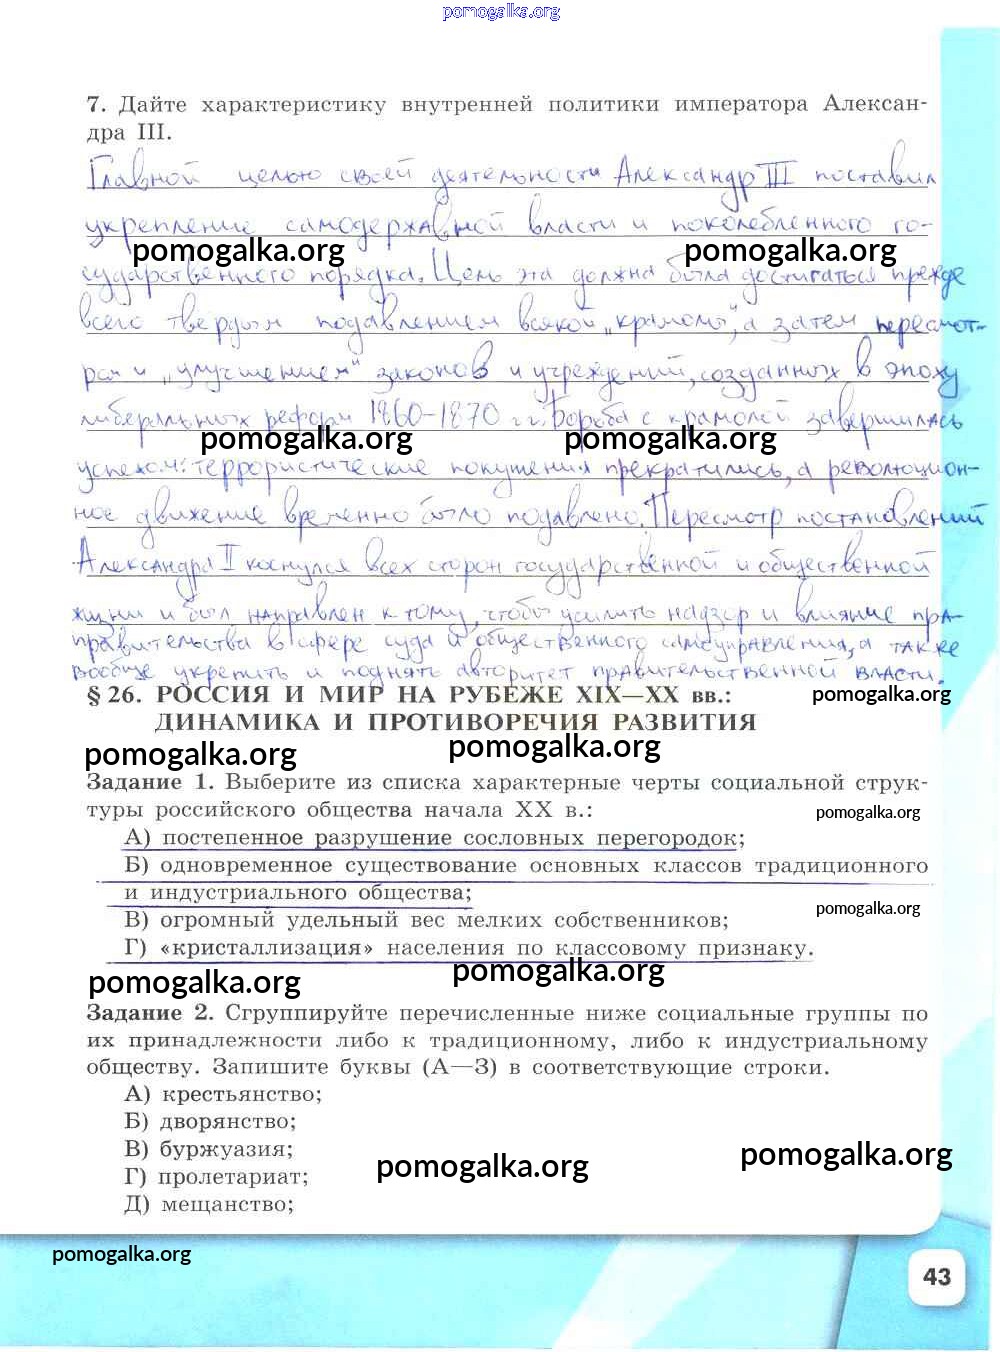 pomogalka.org
7. Дайте характеристику внутренней политики императора Алексан-
дра III.
Главной целью своей деятельности Александр III поставил
укрепление самодержавной власти и поколебленного го-
pomogalka.org pomogalka.org
сударственного порядка. Цель эта должна была достигаться прежде
всего твердым подавлением всякой „крамолы", а затем пересмот-
ром и „улучшением" законов и учреждений, созданных в эпоху
либеральных реформ 1860-1870 гг. Борьба с крамолой завершилась
pomogalka.org pomogalka.org
успехом: террористические покушения прекратились, а революцион-
ное движение временно было подавлено. Пересмотр постановлений
Александра II коснулся всех сторон государственной и общественной
жизни и был направлен к тому, чтобы усилить надзор и влияние пра-
правительства в сфере суда и общественного самоуправления, а также
вообще укрепить и поднять авторитет правительственной власти.
§ 26. РОССИЯ И МИР НА РУБЕЖЕ XIX—XX вв.:
pomogalka.org
ДИНАМИКА И ПРОТИВОРЕЧИЯ РАЗВИТИЯ
pomogalka.org pomogalka.org
Задание 1. Выберите из списка характерные черты социальной струк-
туры российского общества начала XX в.:
pomogalka.org
А) постепенное разрушение сословных перегородок;
Б) одновременное существование основных классов традиционного
и индустриального общества;
pomogalka.org
В) огромный удельный вес мелких собственников;
Г) «кристаллизация» населения по классовому признаку.
pomogalka.org pomogalka.org
Задание 2. Сгруппируйте перечисленные ниже социальные группы по
их принадлежности либо к традиционному, либо к индустриальному
обществу. Запишите буквы (А—З) в соответствующие строки.
А) крестьянство;
Б) дворянство;
В) буржуазия;
pomogalka.org pomogalka.org
Г) пролетариат;
Д) мещанство;
pomogalka.org
43